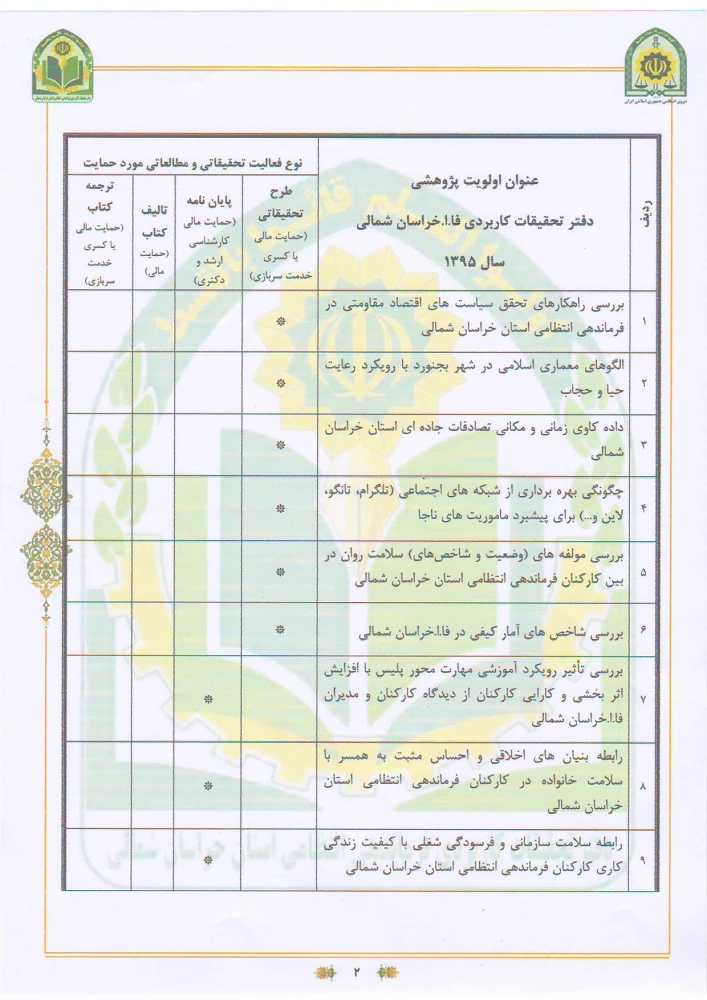 نیروی انتظامی جمهوری اسلامی ایران
ردیف
عنوان اولویت پژوهشی
دفتر تحقیقات کاربردی فا.ا.خراسان شمالی
سال ۱۳۹۵
نوع فعالیت تحقیقاتی و مطالعاتی مورد حمایت
طرح
تحقیقاتی
(حمایت مالی
یا کسری
خدمت سربازی)
پایان نامه
(حمایت مالی
کارشناسی
ارشد و
دکتری)
تالیف
کتاب
(حمایت
مالی)
ترجمه
کتاب
(حمایت مالی
یا کسری
خدمت
سربازی)
۱
بررسی راهکارهای تحقق سیاست های اقتصاد مقاومتی در
فرماندهی انتظامی استان خراسان شمالی
۲
الگوهای معماری اسلامی در شهر بجنورد با رویکرد رعایت
حیا و حجاب
۳
داده کاوی زمانی و مکانی تصادفات جاده ای استان خراسان
شمالی
۴
چگونگی بهره برداری از شبکه های اجتماعی (تلگرام، تانگو،
لاین و...) برای پیشبرد ماموریت های ناجا
۵
بررسی مولفه های (وضعیت و شاخص‌های) سلامت روان در
بین کارکنان فرماندهی انتظامی استان خراسان شمالی
۶
بررسی شاخص های آمار کیفی در فا.ا.خراسان شمالی
۷
بررسی تأثیر رویکرد آموزشی مهارت محور پلیس با افزایش
اثر بخشی و کارایی کارکنان از دیدگاه کارکنان و مدیران
فا.ا.خراسان شمالی
۸
رابطه بنیان های اخلاقی و احساس مثبت به همسر با
سلامت خانواده در کارکنان فرماندهی انتظامی استان
خراسان شمالی
۹
رابطه سلامت سازمانی و فرسودگی شغلی با کیفیت زندگی
کاری کارکنان فرماندهی انتظامی استان خراسان شمالی
۲